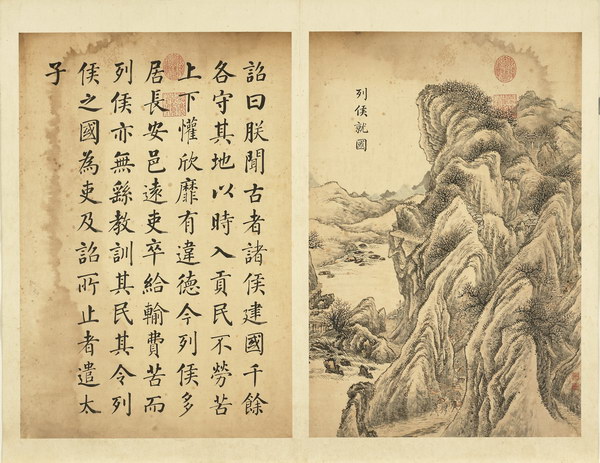 列侯就國
詔曰朕聞古者諸侯建國千餘
各守其地以時入貢民不勞苦
上下懽欣靡有違德今列侯多
居長安邑遠吏卒給輸費苦而
列侯亦無繇教訓其民其令列
侯之國為吏及詔所止者遣太
子